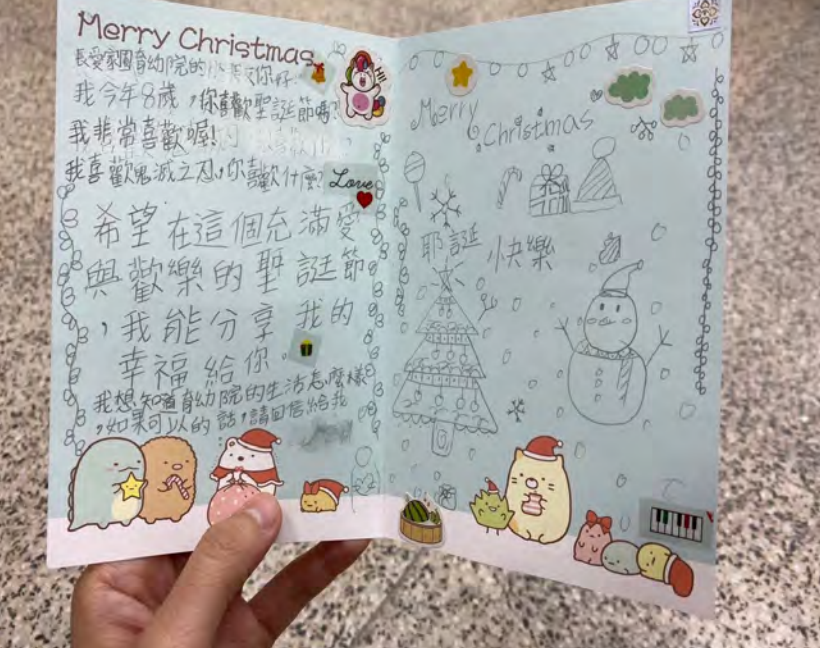 Merry Christmas
長愛家園育幼院的 你好:
我今年8歲,你喜歡聖誕節嗎?
我非常喜歡喔!
我喜歡鬼滅之刃,你喜歡什麼?
Love
希望在這個充滿愛
與歡樂的聖誕節
,我能分享我的
幸福給你。
我想知道育幼院的生活怎麼樣
,如果可以的話,請回信給我
Merry
Christmas
耶誕 快樂